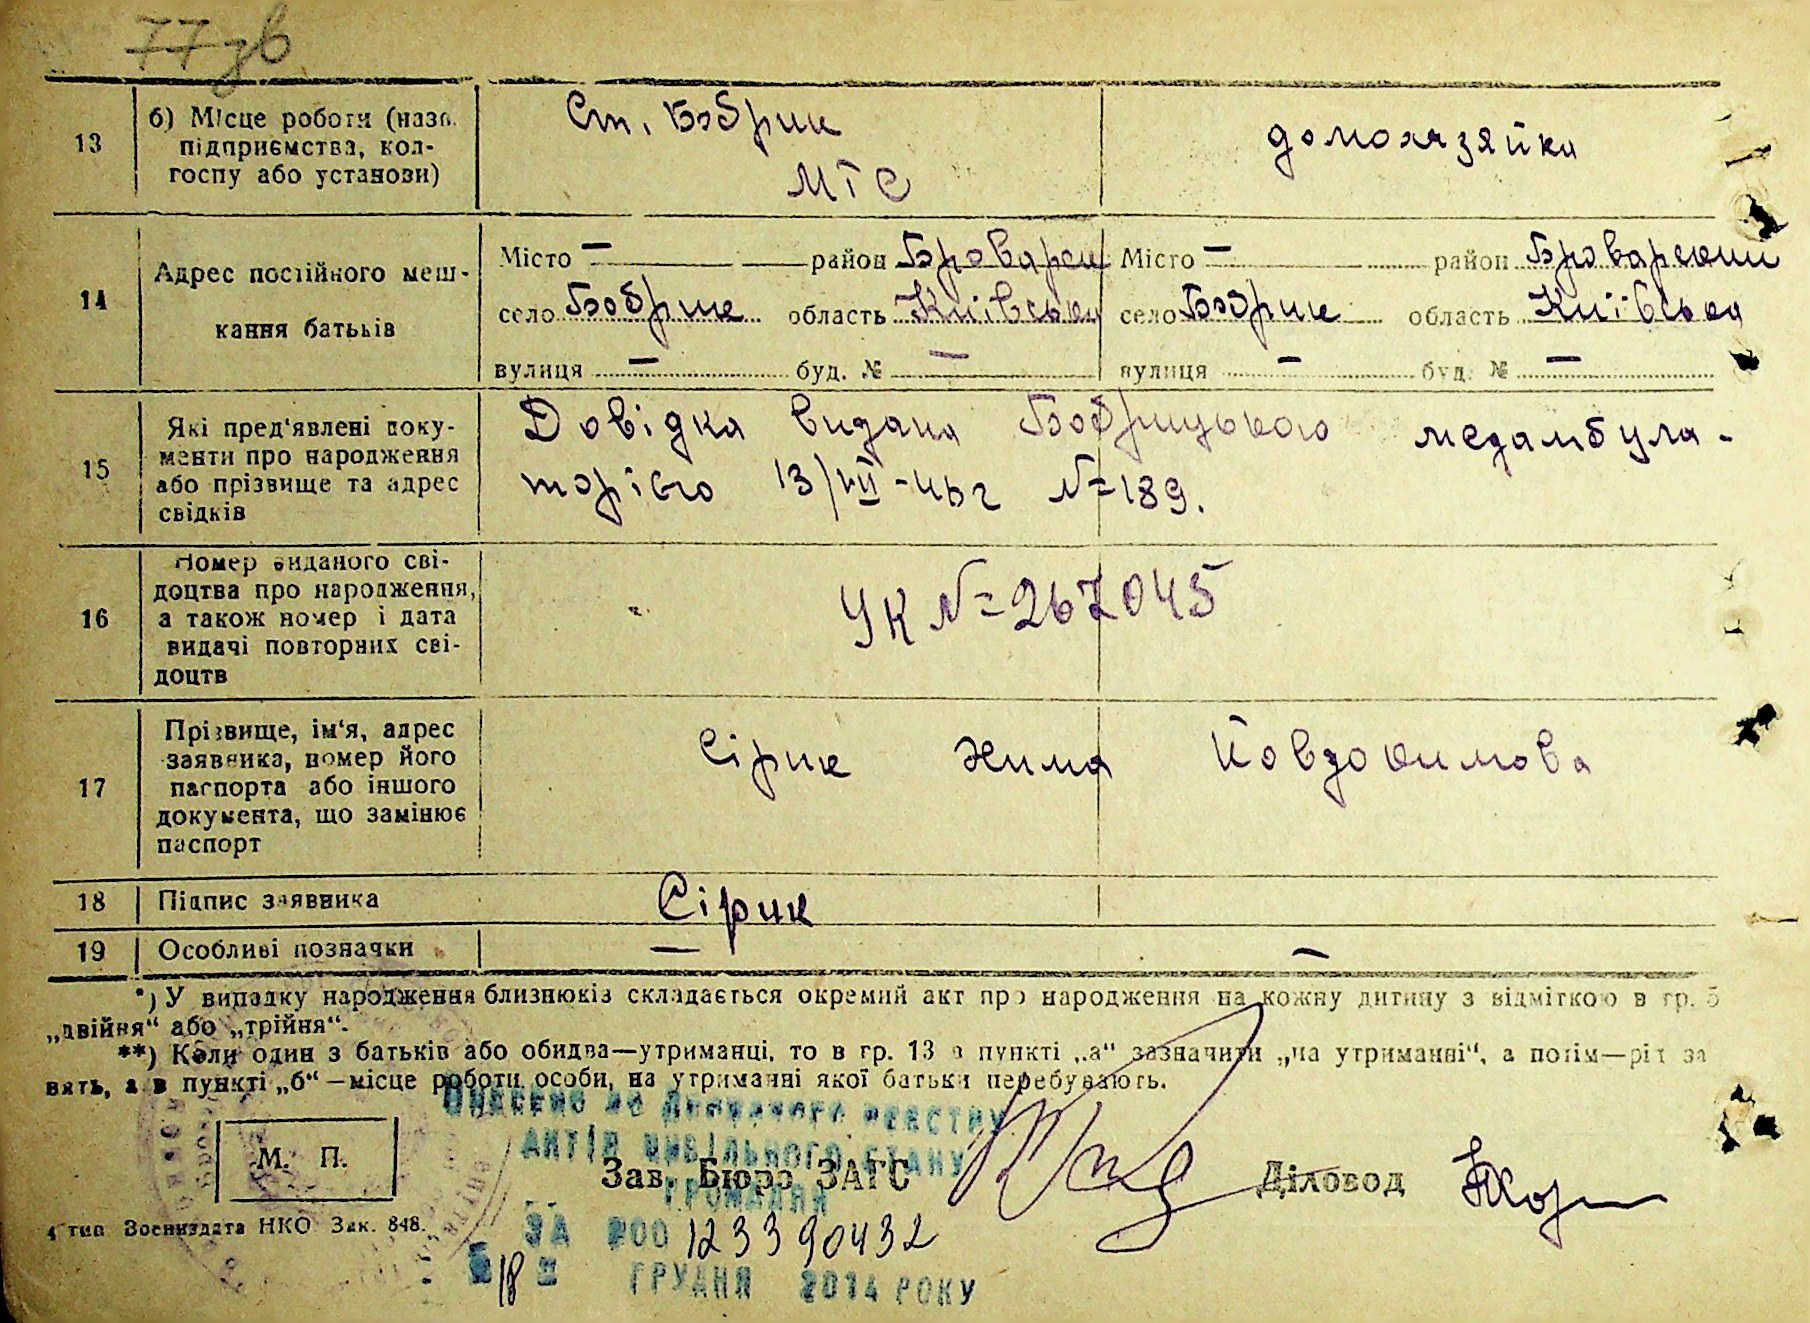 77 зв
13
б) Місце роботи (назв.
підприємства, кол-
госпу або установи)
Ст. Бобрик
МТС
домохазяйка
14
Адрес постійного меш-
кання батьків
Місто — район Броварськ
село Бобрик область Київська
вулиця — буд. № —
Місто — район Броварский
село Бобрик область Київська
вулиця — буд. № —
15
Які пред'явлені доку-
менти про народження
або прізвище та адрес
свідків
Довідка видана Бобрицькою медамбула-
торією 13/VII-46г №189.
16
Номер виданого сві-
доцтва про народження,
а також номер і дата
видачі повторних сві-
доцтв
УК №267045
17
Прізвище, ім'я, адрес
заявника, номер його
паспорта або іншого
документа, що замінює
паспорт
Сірик Хима Йовдокимова
18
Підпис заявника
Сірик
19
Особливі позначки
—
—
*) У випадку народження близнюків складається окремий акт про народження на кожну дитину з відміткою в гр. 5
„двійня“ або „трійня“.
**) Коли один з батьків або обидва—утриманці, то в гр. 13 в пункті „а“ зазначити „на утриманні“, а потім—рід за
нять, а в пункті „б“—місце роботи особи, на утриманні якої батьки перебувають.
Внесено до Державного реєстру
актів цивільного стану
громадян
М. П.
Зав. Бюро ЗАГС
Діловод
4 тип Воениздата НКО Зак. 848.
ЗА 123390432
18 ГРУДНЯ 2014 РОКУ